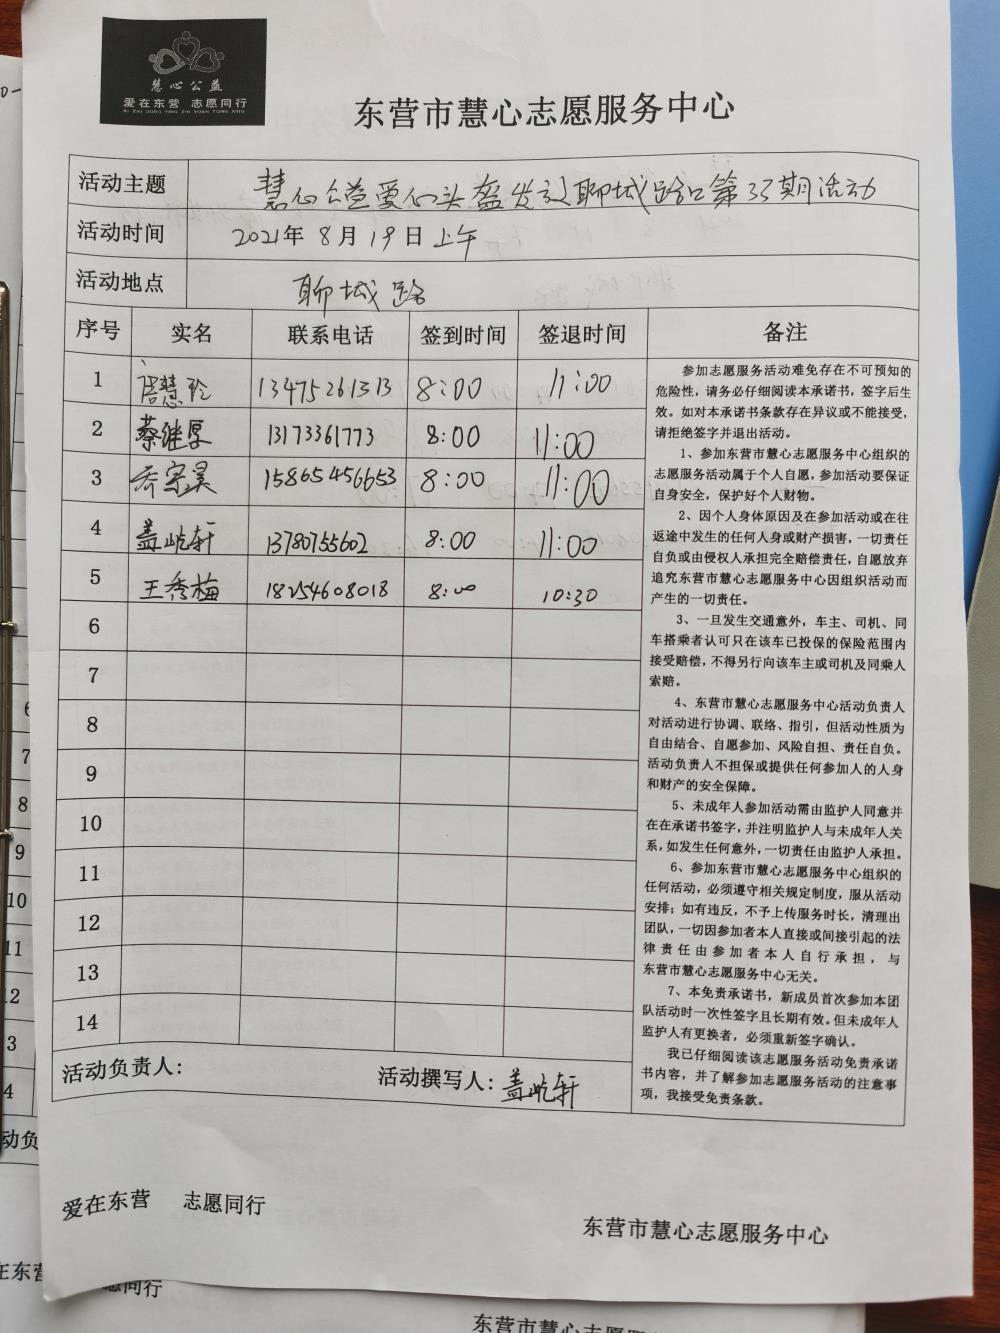 慧心公益
爱在东营 志愿同行
AI ZAI DONG YING ZHI YUAN TONG XING
东营市慧心志愿服务中心
活动主题 慧心公益爱心头盔发放聊城路口第33期活动
活动时间 2021年8月19日上午
活动地点 聊城路
序号 实名 联系电话 签到时间 签退时间 备注
1 慧玲 13475261313 8:00 11:00
2 蔡继厚 13173361773 8:00 11:00
3 乔宗昊 15865456653 8:00 11:00
4 盖屹轩 13780755602 8:00 11:00
5 王秀梅 18254608018 8:00 10:30
6
7
8
9
10
11
12
13
14
参加志愿服务活动难免存在不可预知的
危险性，请务必仔细阅读本承诺书，签字后生
效。如对本承诺书条款存在异议或不能接受，
请拒绝签字并退出活动。
1、参加东营市慧心志愿服务中心组织的
志愿服务活动属于个人自愿，参加活动要保证
自身安全，保护好个人财物。
2、因个人身体原因及在参加活动或在往
返途中发生的任何人身或财产损害，一切责任
自负或由侵权人承担完全赔偿责任，自愿放弃
追究东营市慧心志愿服务中心因组织活动而
产生的一切责任。
3、一旦发生交通意外，车主、司机、同
车搭乘者认可只在该车已投保的保险范围内
接受赔偿，不得另行向该车主或司机及同乘人
索赔。
4、东营市慧心志愿服务中心活动负责人
对活动进行协调、联络、指引，但活动性质为
自由结合、自愿参加、风险自担、责任自负。
活动负责人不担保或提供任何参加人的人身
和财产的安全保障。
5、未成年人参加活动需由监护人同意并
在在承诺书签字，并注明监护人与未成年人关
系，如发生任何意外，一切责任由监护人承担。
6、参加东营市慧心志愿服务中心组织的
任何活动，必须遵守相关规定制度，服从活动
安排；如有违反，不予上传服务时长，清理出
团队，一切因参加者本人直接或间接引起的法
律责任由参加者本人自行承担，与
东营市慧心志愿服务中心无关。
7、本免责承诺书，新成员首次参加本团
队活动时一次性签字且长期有效。但未成年人
监护人有更换者，必须重新签字确认。
我已仔细阅读该志愿服务活动免责承诺
书内容，并了解参加志愿服务活动的注意事
项，我接受免责条款。
活动负责人： 活动撰写人：盖屹轩
爱在东营 志愿同行
东营市慧心志愿服务中心
6
7
8
9
10
11
12
3
4
动负
在东营 志愿同行
东营市慧心志愿服